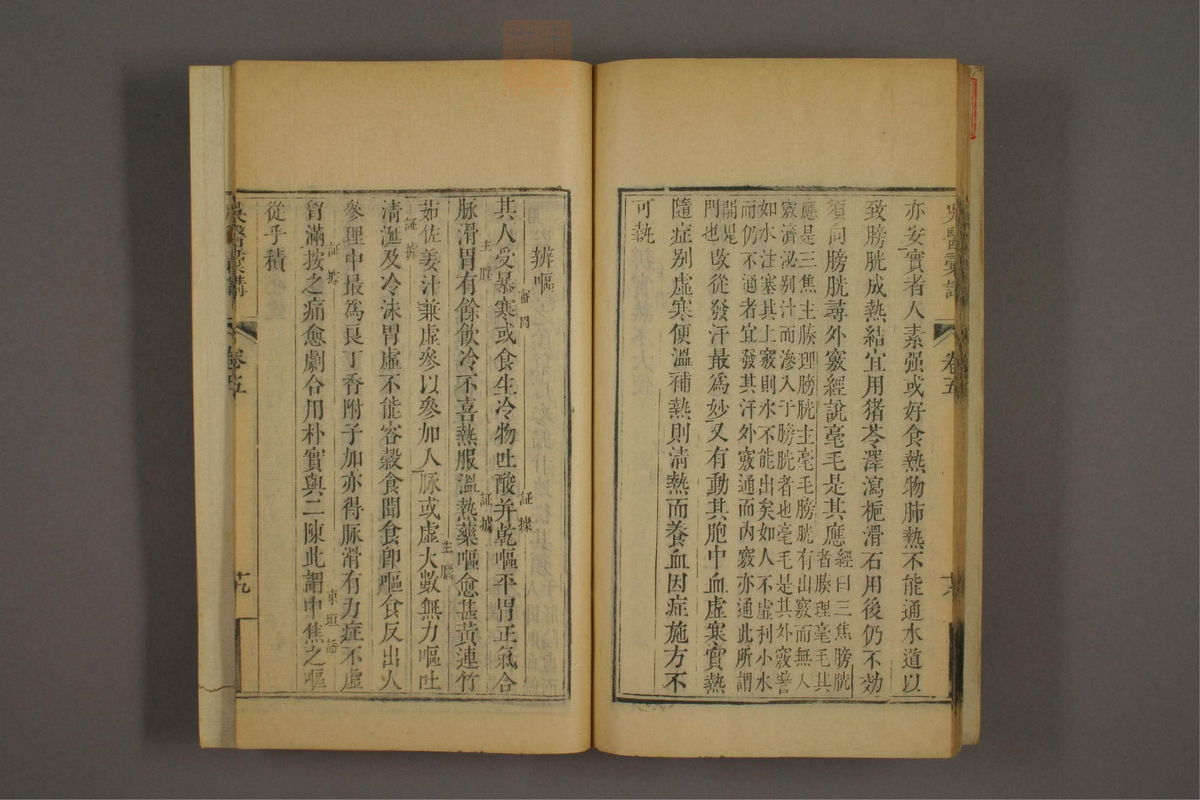 吳醫彙講
卷五
亦安實者人素强或好食熱物肺熱不能通水道以
致膀胱成熱結宜用猪苓澤瀉梔滑石用後仍不効
須向膀胱尋外竅經說毫毛是其應經曰三焦膀胱者腠理毫毛其
應是三焦主腠理膀胱主毫毛膀胱有出竅而無入
竅濟泌别汁而滲入于膀胱者也毫毛是其外竅譬
如水注塞其上竅則水不能出矣如人不虛利小水
而仍不通者宜發其汗外竅通而内竅亦通此所謂
開鬼門也故從發汗最爲妙又有動其胞中血虛寒實熱
隨症别虛寒便溫補熱則清熱而養血因症施方不
可執
辨嘔
其人受暴寒或食生冷物吐酸并乾嘔平胃正氣合
証據
脉滑胃有餘飲冷不喜熱服溫熱藥嘔愈甚黃連竹
主腦
証據
茹佐姜汁兼虛參以參加入脉或虛大數無力嘔吐
主腦
清涎及冷沫胃虛不能容穀食聞食卽嘔食反出火
証據
參理中最爲良丁香附子加亦得脉滑有力症不虛
胷滿按之痛愈劇合用朴實與二陳此謂中焦之嘔
証據
東垣語
從乎積
吳醫彙講
卷五
十九